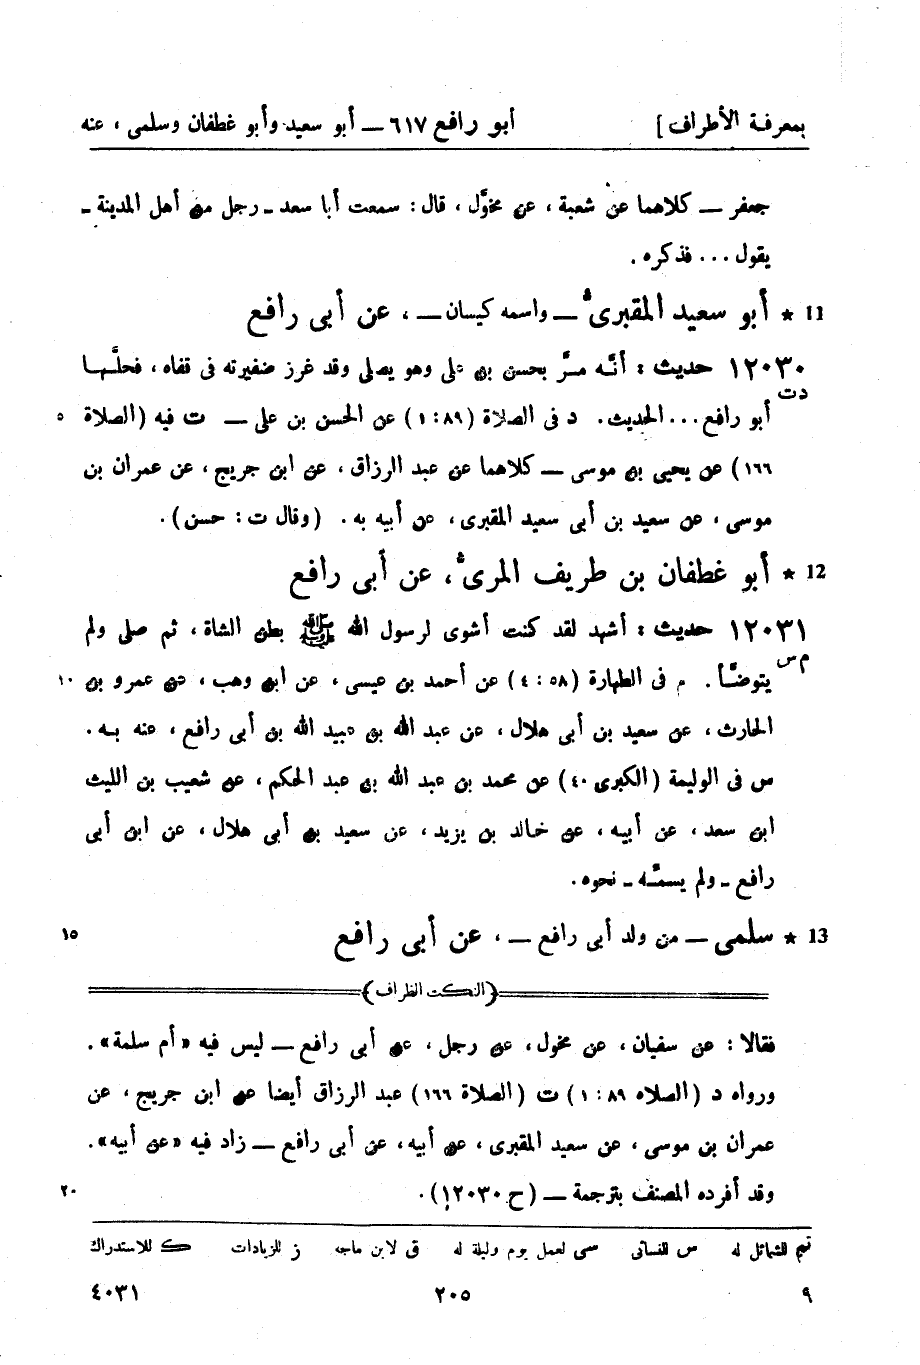 بمعرفة الأطراف] أبو رافع ٦١٧ ــ أبو سعيد وأبو غطفان وسلمى ، عنه
جعفر ــ كلاهما عن شعبة ، عن مخوَّل ، قال : سمعت أبا سعد ـ رجل من أهل المدينة ـ
يقول ... فذكره .
11 * أبو سعيد المقبرىّ ــ واسمه كيسان ــ ، عن أبى رافع
١٢٠٣٠ حديث : أنَّه مرَّ بحسن بن على وهو يصلى وقد غرز ضفيرته فى قفاه ، فحلَّهـا
دت
أبو رافع ... الحديث . د فى الصلاة (٨٩ : ١) عن الحسن بن على ــ ت فيه (الصلاة ٥
١٦٦) عن يحيى بن موسى ــ كلاهما عن عبد الرزاق ، عن ابن جريج ، عن عمران بن
موسى ، عن سعيد بن أبى سعيد المقبرى ، عن أبيه به . (وقال ت : حسن) .
12 * أبو غطفان بن طريف المرىّ ، عن أبى رافع
١٢٠٣١ حديث : أشهد لقد كنت أشوى لرسول الله ﷺ بطن الشاة ، ثم صلى ولم
م س
يتوضَّأ . م فى الطهارة (٥٨ : ٤) عن أحمد بن عيسى ، عن ابن وهب ، عن عمرو بن ١٠
الحارث ، عن سعيد بن أبى هلال ، عن عبد الله بن عبيد الله بن أبى رافع ، عنه بـه .
س فى الوليمة (الكبرى ٤٠) عن محمد بن عبد الله بن عبد الحكم ، عن شعيب بن الليث
ابن سعد ، عن أبيه ، عن خالد بن يزيد ، عن سعيد بن أبى هلال ، عن ابن أبى
رافع ـ ولم يسمّه ـ نحوه .
13 * سلمى ــ من ولد أبى رافع ــ ، عن أبى رافع ١٥
(النكت الظراف)
فقالا : عن سفيان ، عن مخول ، عن رجل ، عن أبى رافع ــ ليس فيه «أم سلمة» .
ورواه د (الصلاه ٨٩ : ١) ت (الصلاة ١٦٦) عبد الرزاق أيضا عن ابن جريج ، عن
عمران بن موسى ، عن سعيد المقبرى ، عن أبيه ، عن أبى رافع ــ زاد فيه «عن أبيه» .
وقد أفرده المصنف بترجمة ــ (ح ١٢٠٣٠) . ٢٠
تم للشمائل له س للنسائى سى لعمل يوم وليلة له ق لابن ماجه ز للزيادات ك للاستدراك
٩ ٢٠٥ ٤٠٣١